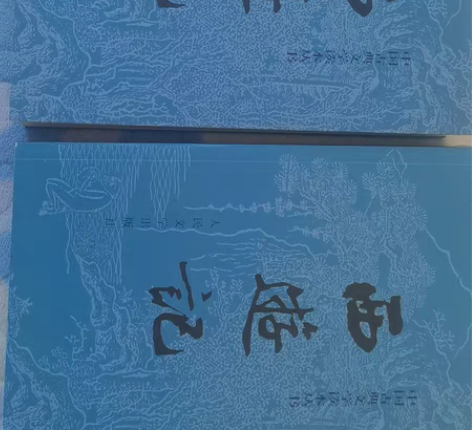 中国古典文学读本丛书
西遊记
人民文学出版社
中国古典文学读本丛书